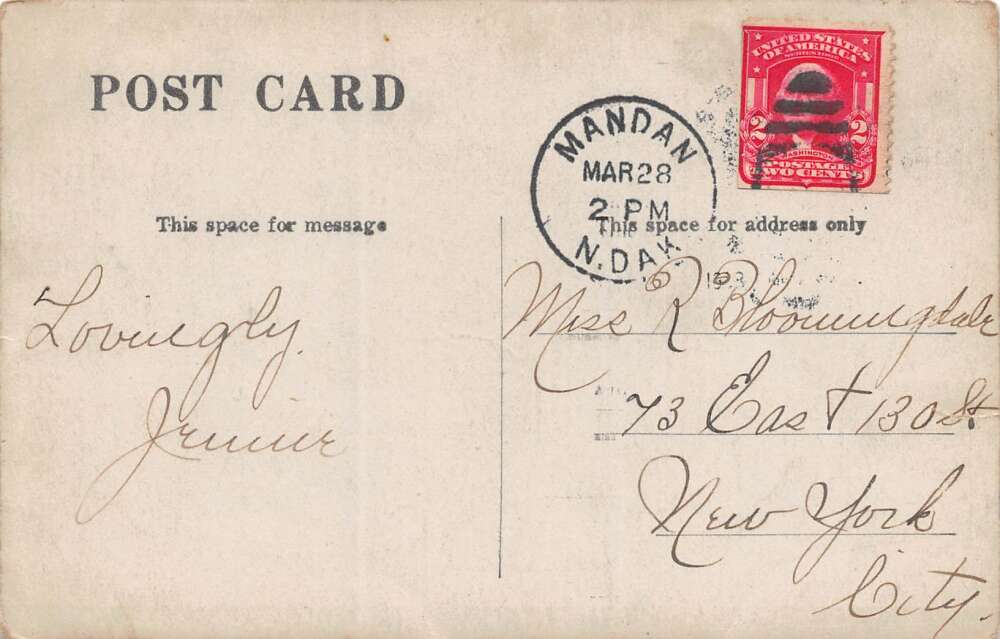 POST CARD
UNITED STATES
OF AMERICA
2 2
WASHINGTON
POSTAGE
TWO CENTS
MANDAN
MAR 28
2 PM
N. DAK
This space for message
This space for address only
Lovingly
Jennie
Miss R Bloomingdale
73 East 130 St
New York
City.